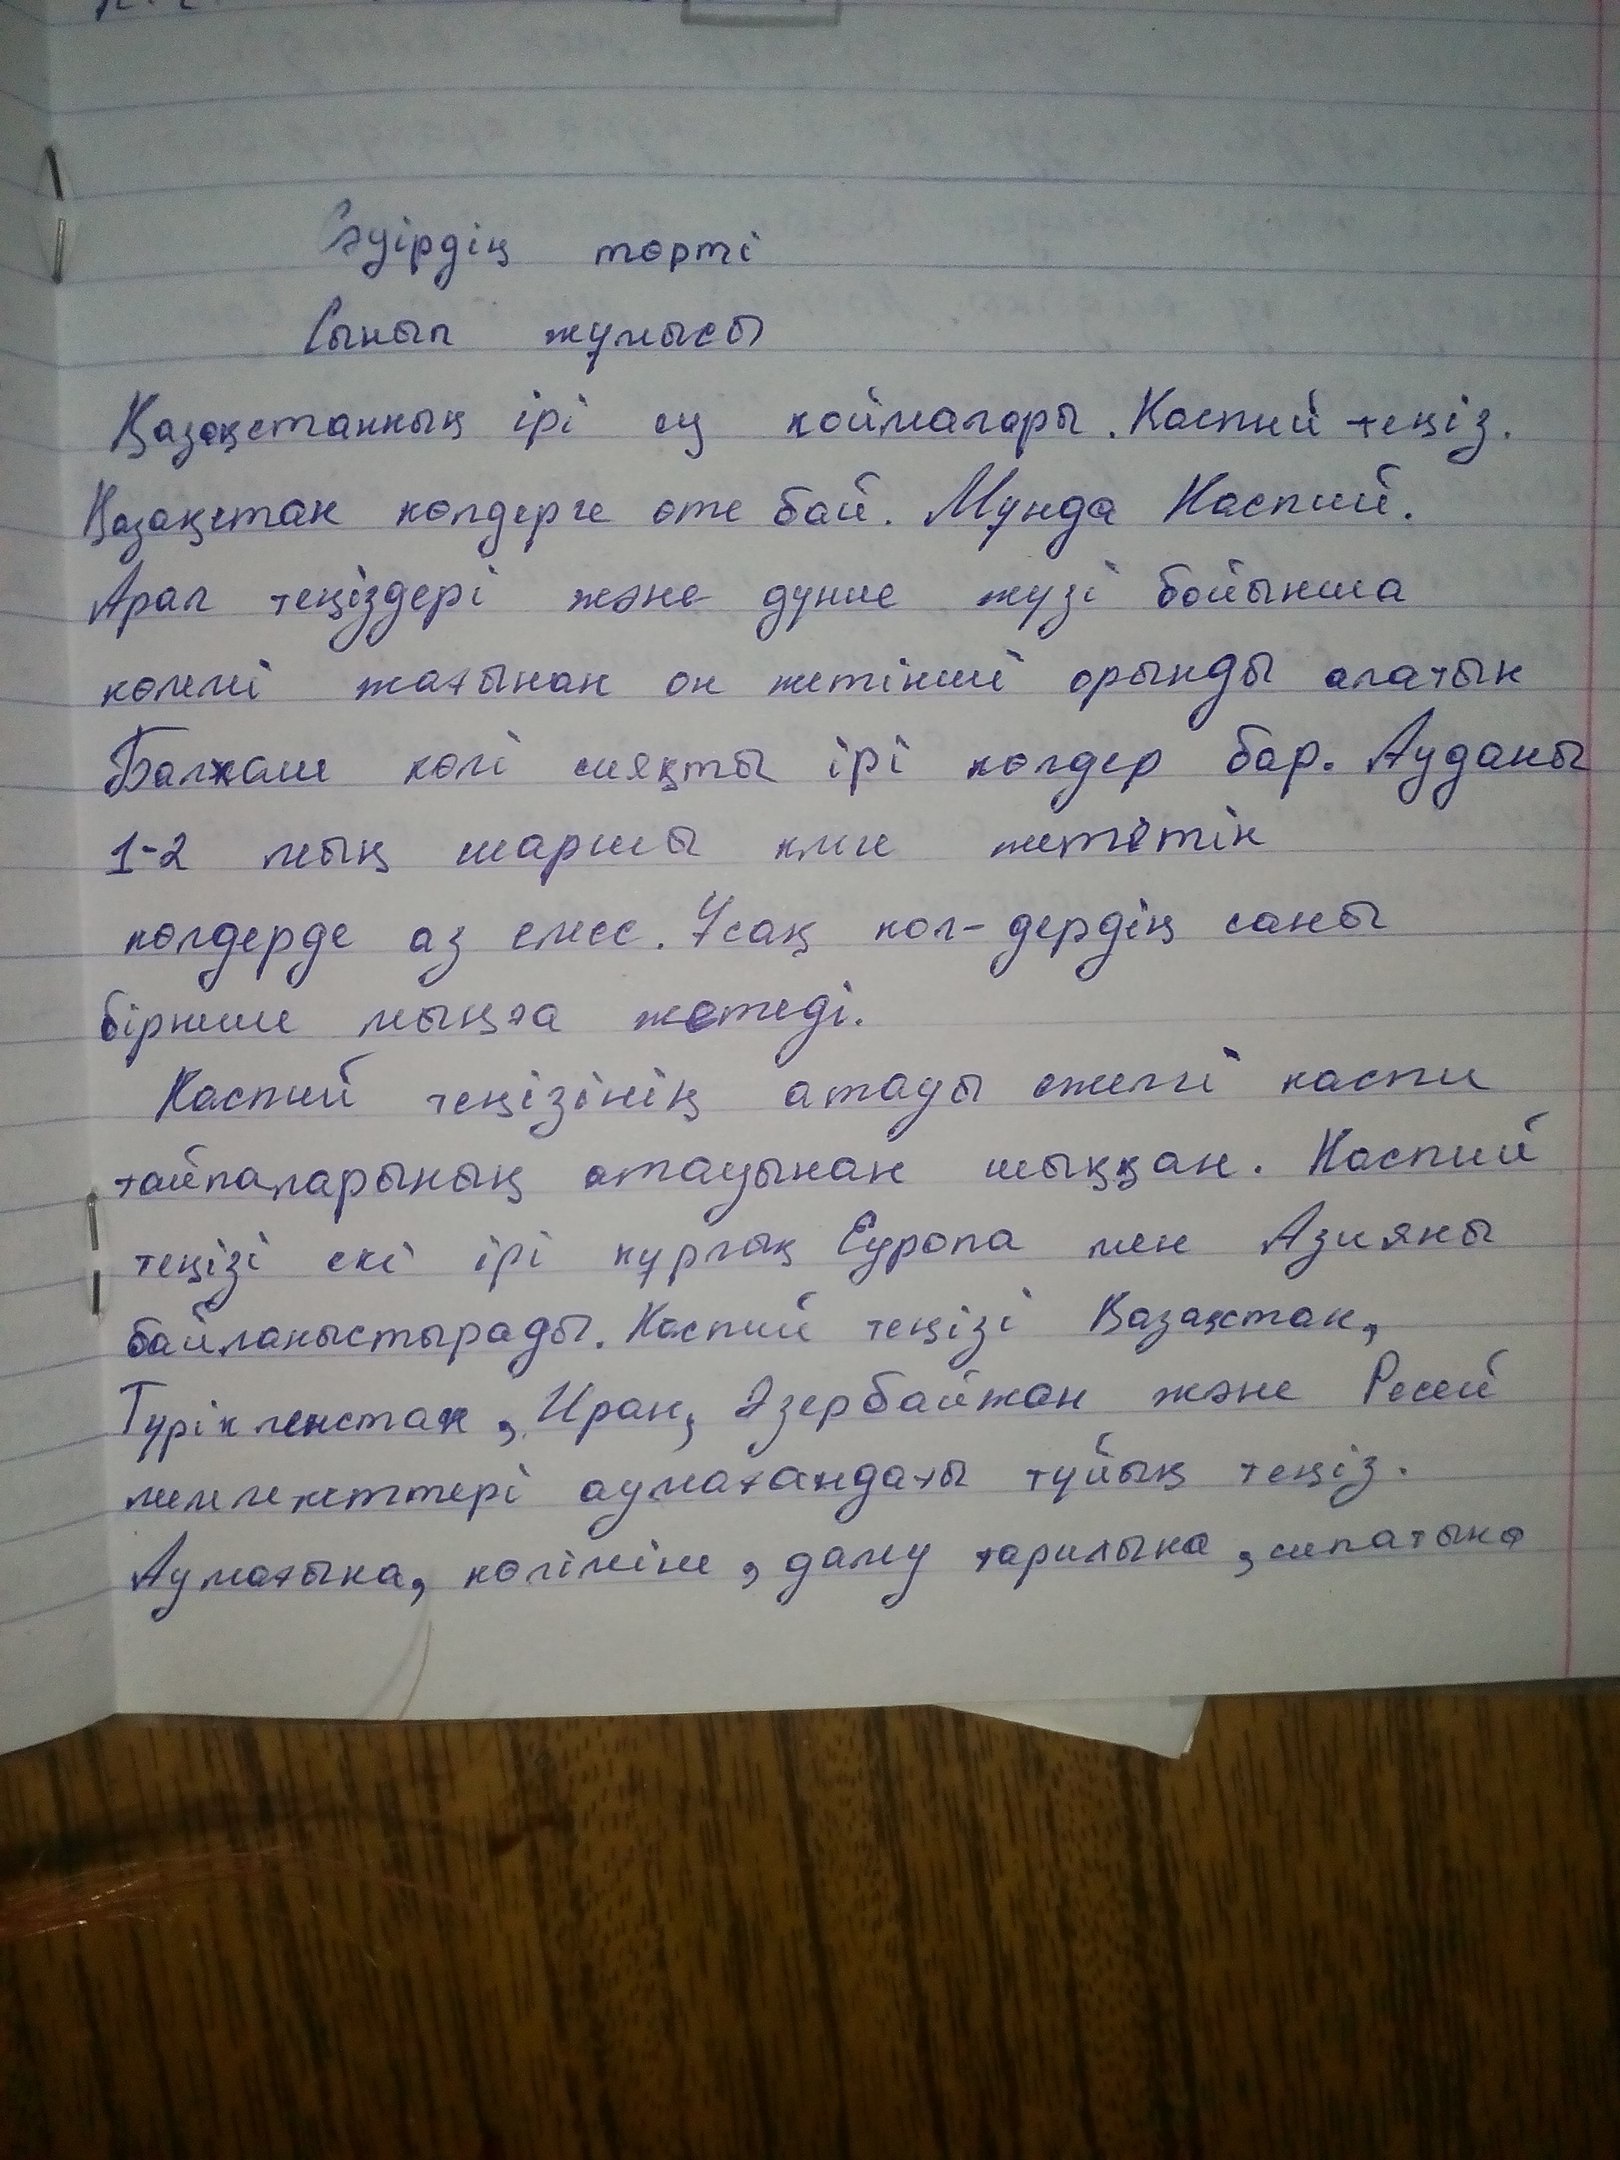 Сәуірдің төрті
Сынып жұмысы
Қазақстанның ірі су коймалары. Каспий теңіз.
Қазақстан көлдерге өте бай. Мұнда Каспий.
Арал теңіздері және дүние жүзі бойынша
көлемі жағынан он жетінші орынды алатын
Балхаш көлі сияқты ірі көлдер бар. Ауданы
1-2 мың шаршы км-ге жететін
көлдерде аз емес. Ұсақ көл-дердің саны
бірнеше мыңға жетеді.
Каспий теңізінің атауы ежелгі каспи
тайпаларының атауынан шыққан. Каспий
теңізі екі ірі құрлық Еуропа мен Азияны
байланыстырады. Каспий теңізі Қазақстан,
Түрікменстан, Иран, Әзербайжан және Ресей
мемлекеттері аумағандағы тұйық теңіз.
Аумағына, көліміне, даму тарихына, сипатына